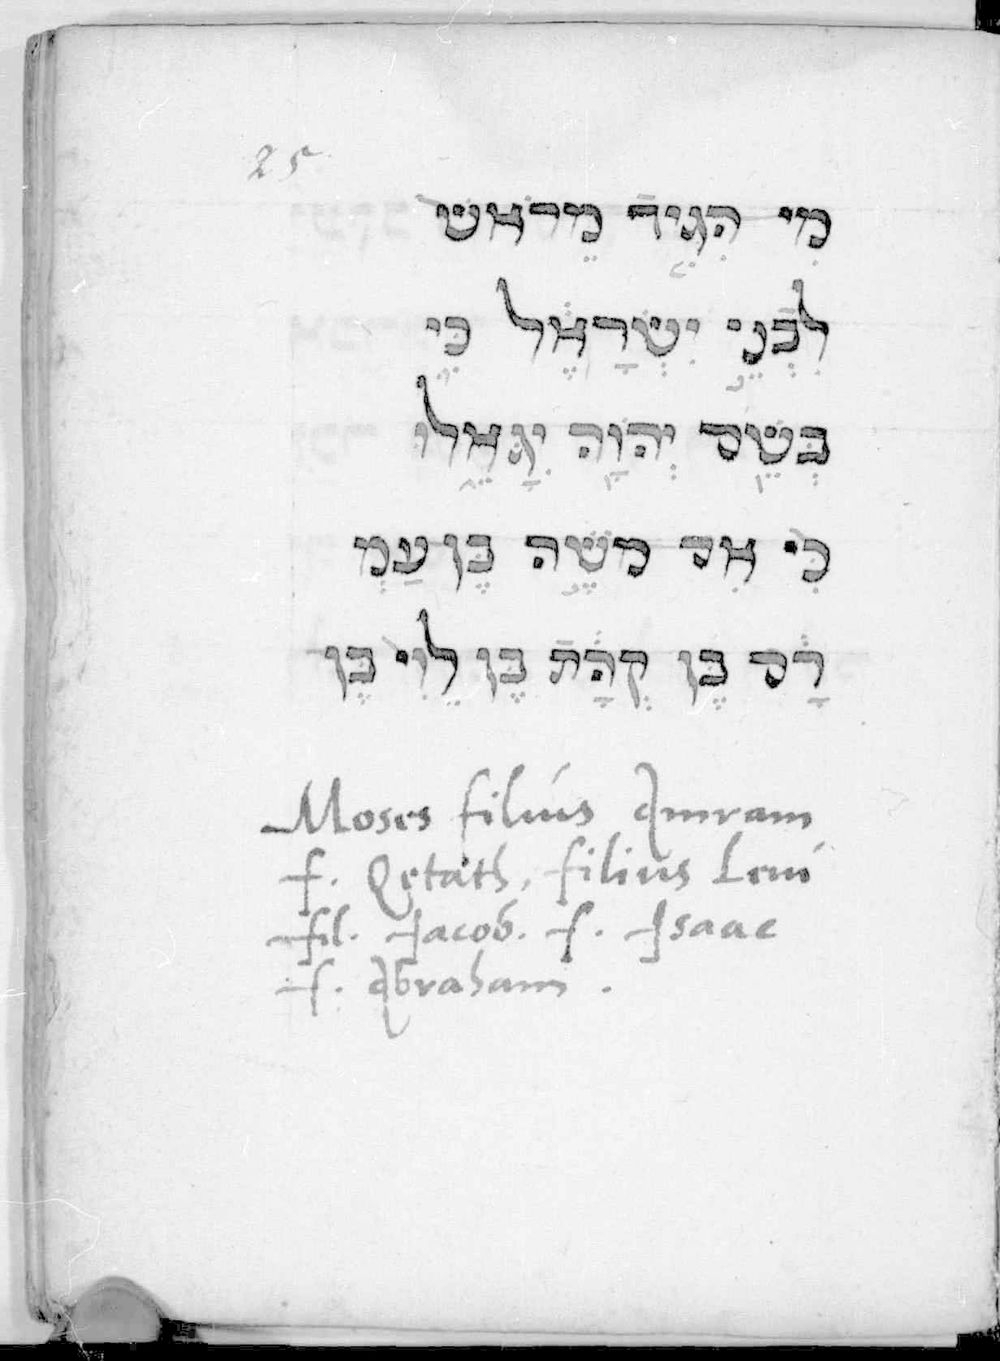 25
מִי הִגִּיד מֵרֹאשׁ
לִבְנֵי יִשְׂרָאֶל כִּי
בְּשֵׁם יְהוָה יִגָּאֵלוּ
כִּי אִם מֹשֶׁה בֶּן עַמְ
רָם בֶּן קְהָת בֶּן לֵוִי בֶּן
Moses filius Amram
f. Qetath, filius Levi
fil. Jacob. f. Isaac
f. Abraham.